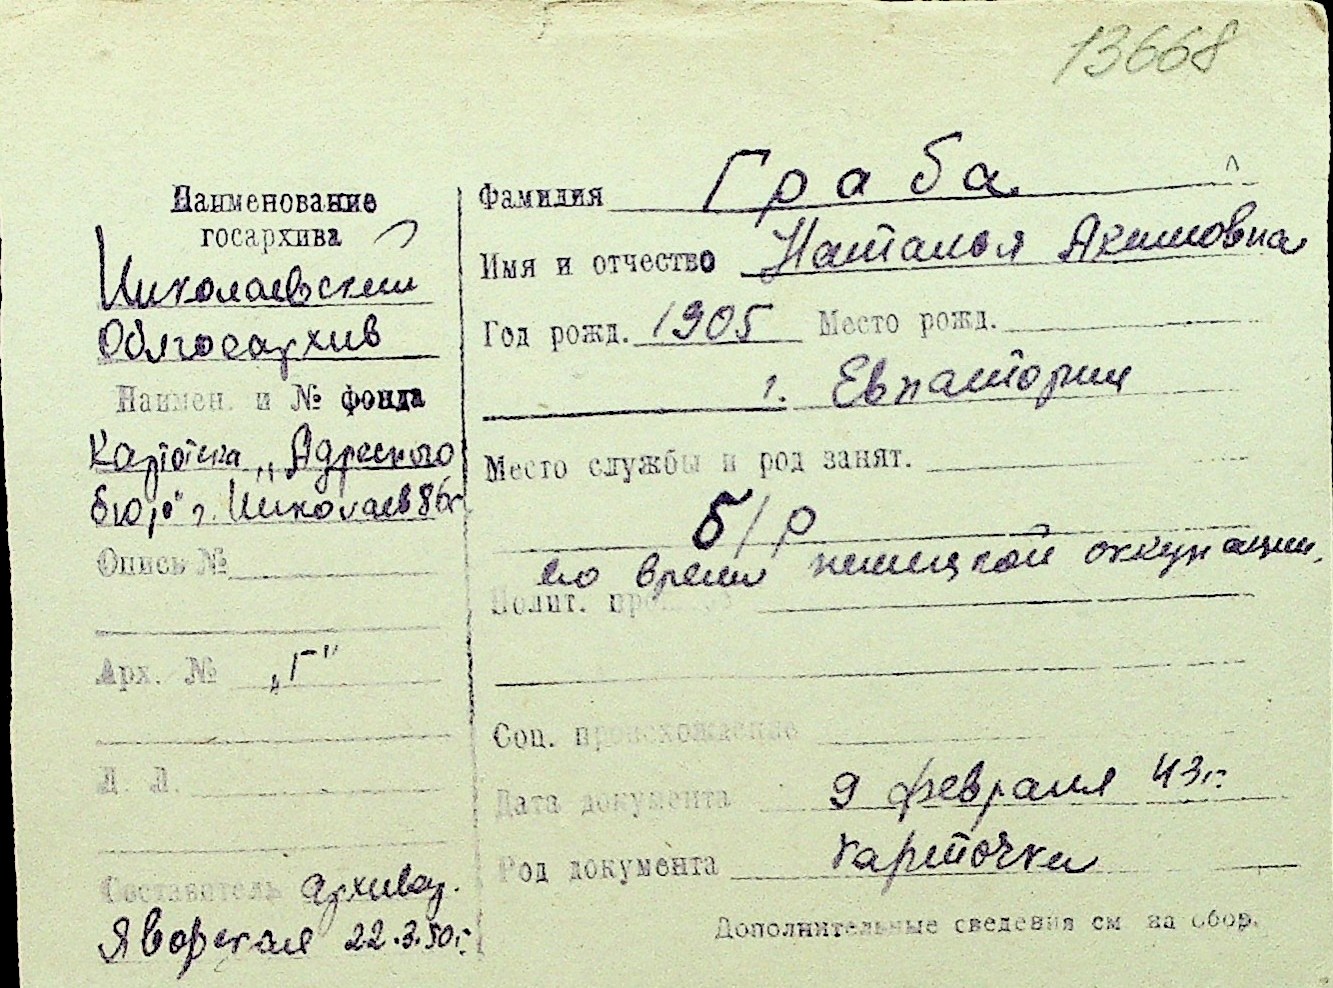 13668
Наименование
госархива
Николаевский
Облгосархив
Наимен. и № фонда
Картотека „Адресного
бюро" г. Николаев
Опись №
Арх. № „Г"
Л. Л.
Составитель архивар.
Яворская 22.3.50г.
Фамилия Граба
Имя и отчество Наталья Акимовна
Год рожд. 1905 Место рожд.
г. Евпатории
Место службы и род занят.
б/р
во время немецкой оккупации.
Полит.
Соц. происхождение
Дата документа 9 февраля 43г.
Род документа карточка
Дополнительные сведения см на обор.